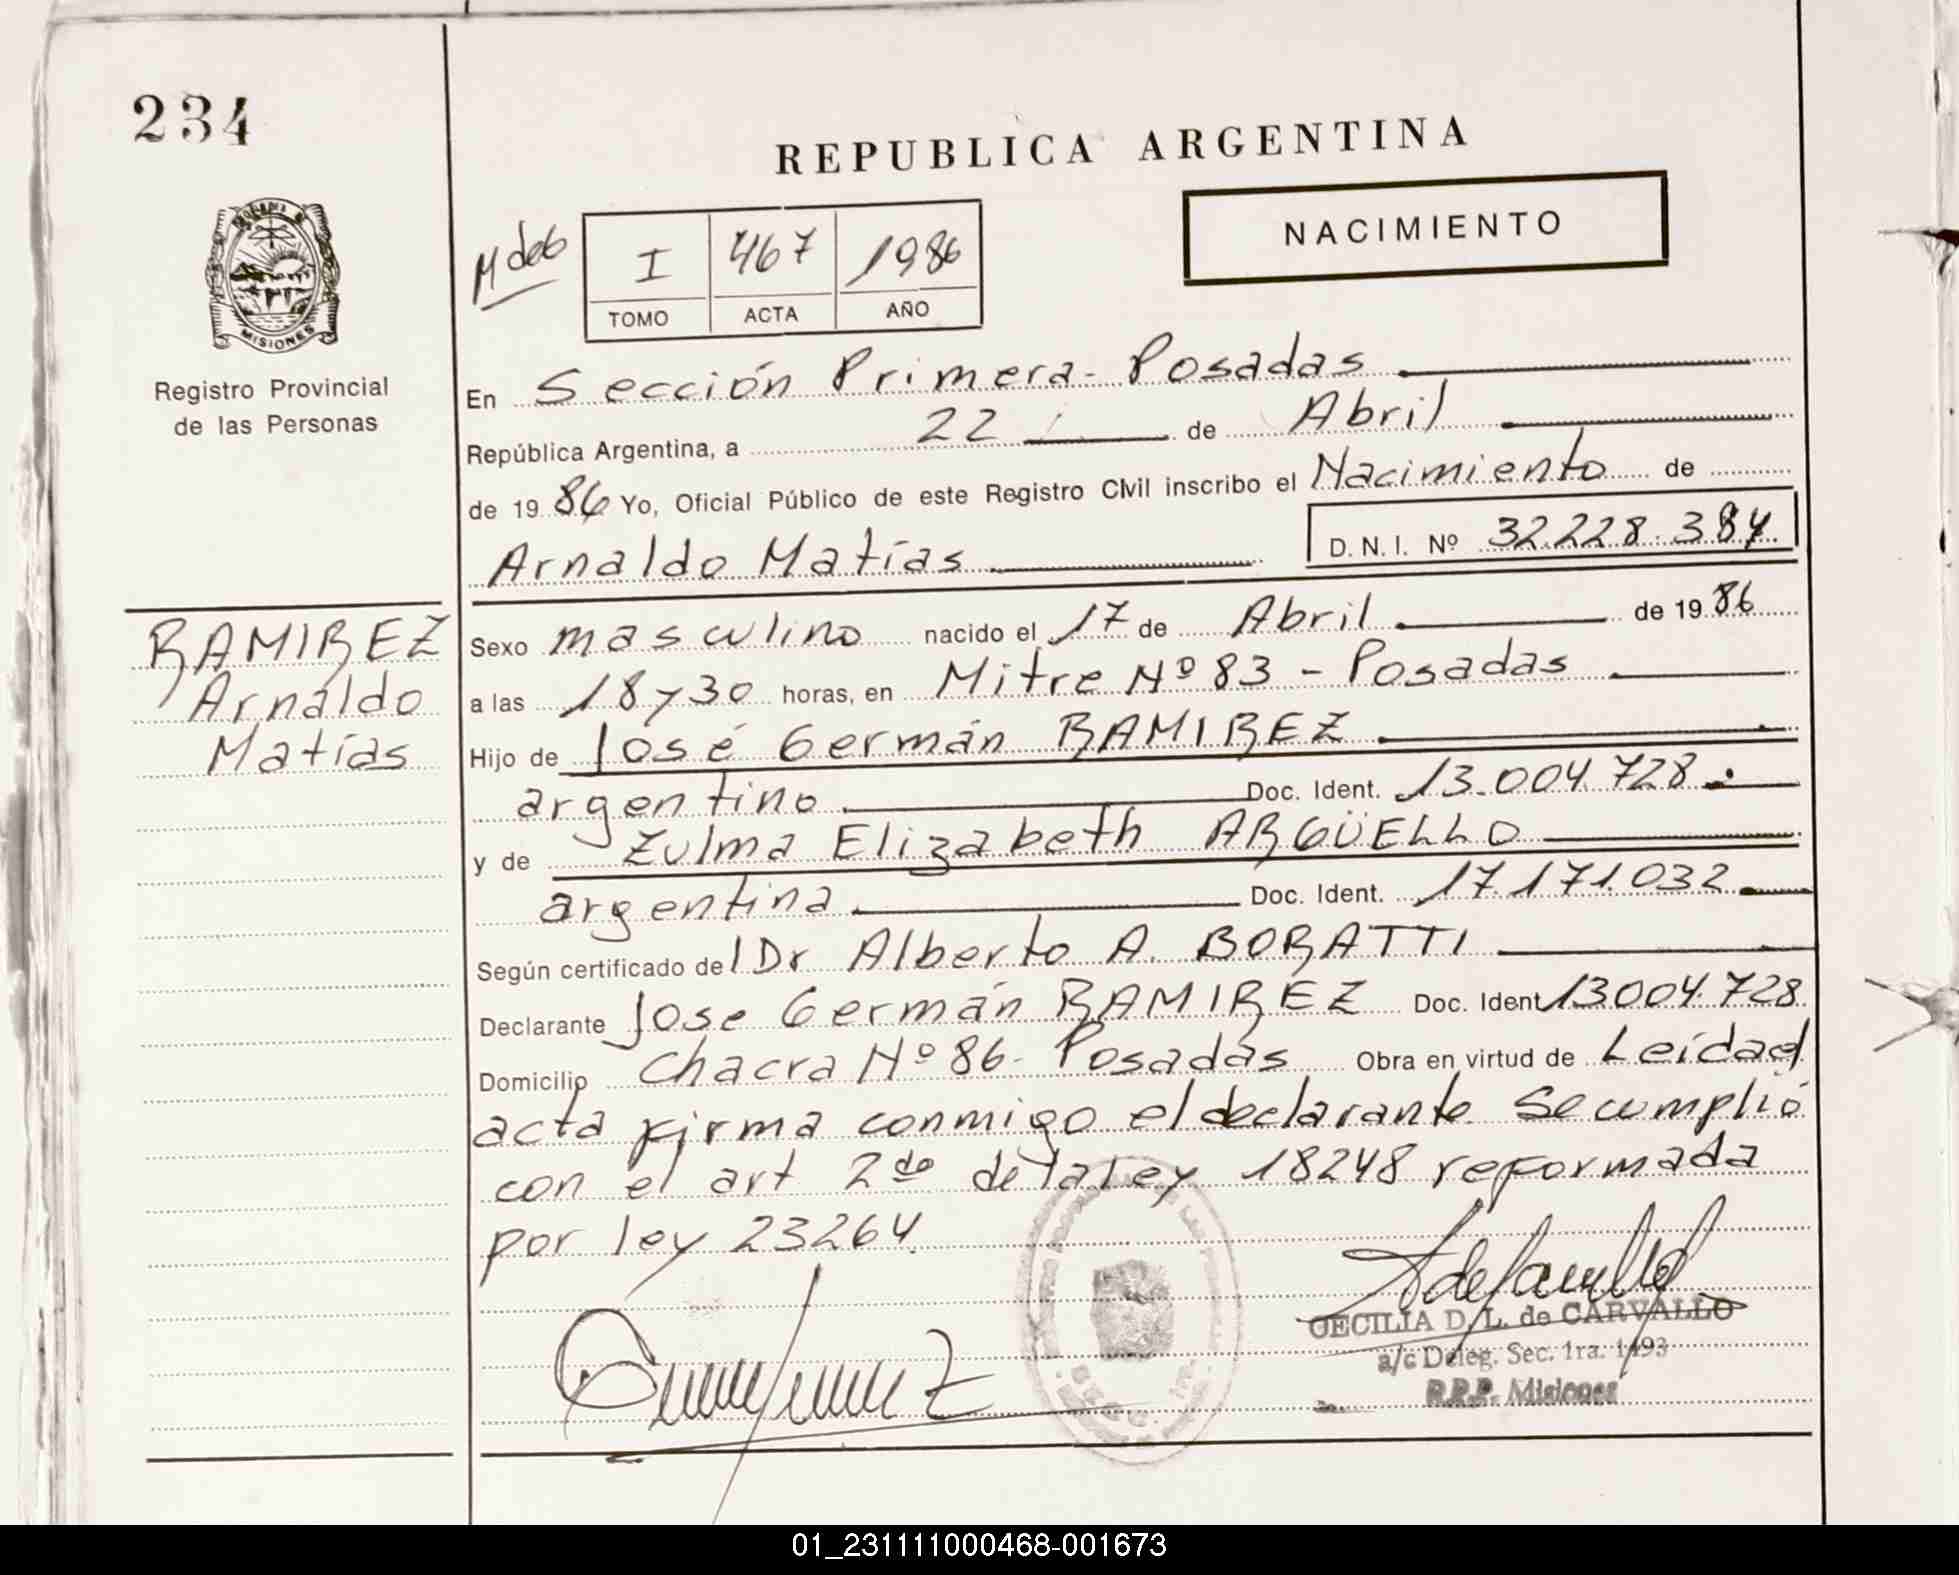 234
REPUBLICA ARGENTINA
NACIMIENTO
M deb
I 467 1986
TOMO ACTA AÑO
MISIONES
Registro Provincial
de las Personas
En Sección Primera - Posadas
República Argentina, a 22 de Abril
de 1986 Yo, Oficial Público de este Registro Civil inscribo el Nacimiento de
Arnaldo Matías D. N. I. Nº 32.228.384
RAMIREZ
Arnaldo
Matías
Sexo masculino nacido el 17 de Abril de 1986
a las 18 y 30 horas, en Mitre Nº 83 - Posadas
Hijo de José Germán RAMIREZ
argentino Doc. Ident. 13.004.728
y de Zulma Elizabeth ARGÜELLO
argentina Doc. Ident. 17.171.032
Según certificado del Dr Alberto A. BORATTI
Declarante Jose Germán RAMIREZ Doc. Ident 13004.728
Domicilio Chacra Nº 86 - Posadas Obra en virtud de Leída el
acta firma conmigo el declarante. Se cumplió
con el art 2do de la Ley 18248 reformada
por ley 23264.
CECILIA D. L. de CARVALLO
a/c Deleg. Sec. 1ra. 1493
R.P.P. Misiones
01_231111000468-001673